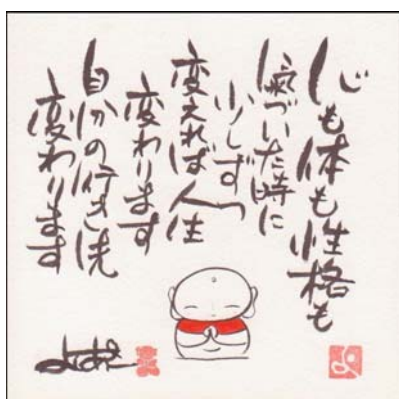 心も体も性格も
気づいた時に
少しずつ
変えれば人生
変わります
自分の行き先
変わります